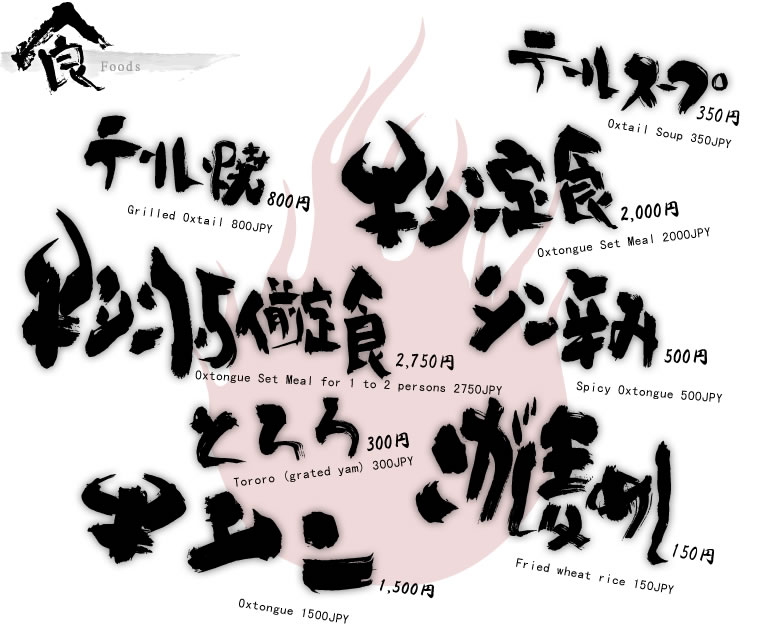 食
Foods
テールスープ
350円
Oxtail Soup 350JPY
テール焼
800円
Grilled Oxtail 800JPY
牛タン定食
2,000円
Oxtongue Set Meal 2000JPY
牛タン1.5人前定食
2,750円
Oxtongue Set Meal for 1 to 2 persons 2750JPY
タン辛み
500円
Spicy Oxtongue 500JPY
とろろ
300円
Tororo (grated yam) 300JPY
麦めし
150円
Fried wheat rice 150JPY
牛タン
1,500円
Oxtongue 1500JPY